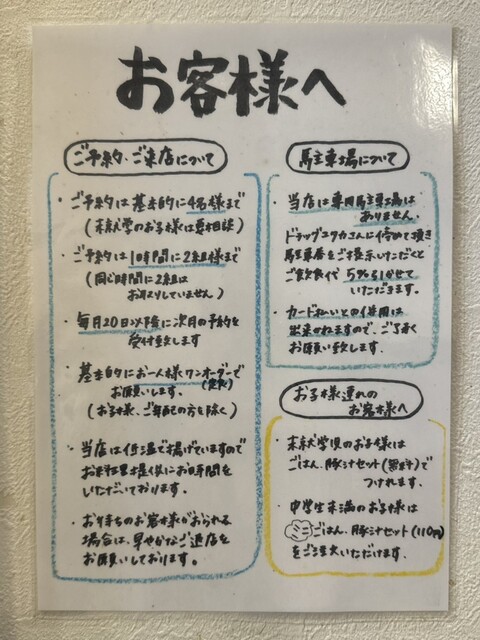 お客様へ
ご予約、ご来店について
・ご予約は基本的に4名様まで
(未就学のお子様は要相談)
・ご予約は1時間に2組様まで
(同じ時間に2組は
お取りしていません)
・毎月20日以降に次月の予約を
受付致します
・基本的にお一人様ワンオーダーで
(定食)
お願いします。
(お子様、ご年配の方を除く)
・当店は低温で揚げていますので
お料理提供にお時間を
いただいております。
・お待ちのお客様がおられる
場合は、早やかなご退店を
お願いしております。
馬主車場について
・当店は専用馬主車場は
ありません。
ドラッグユタカさんに停めて頂き
馬主車券をご提示いただくと
ご飲食代 5%引かせて
いただきます。
・カード払いとの併用は
出来かねますので、ご了承
お願い致します
お子様連れの
お客様へ
・未就学児のお子様は
ごはん、豚汁セット()で
つけれます。
・中学生未満のお子様は
ミニごはん、豚汁セット(110円)
をご注文いただけます。